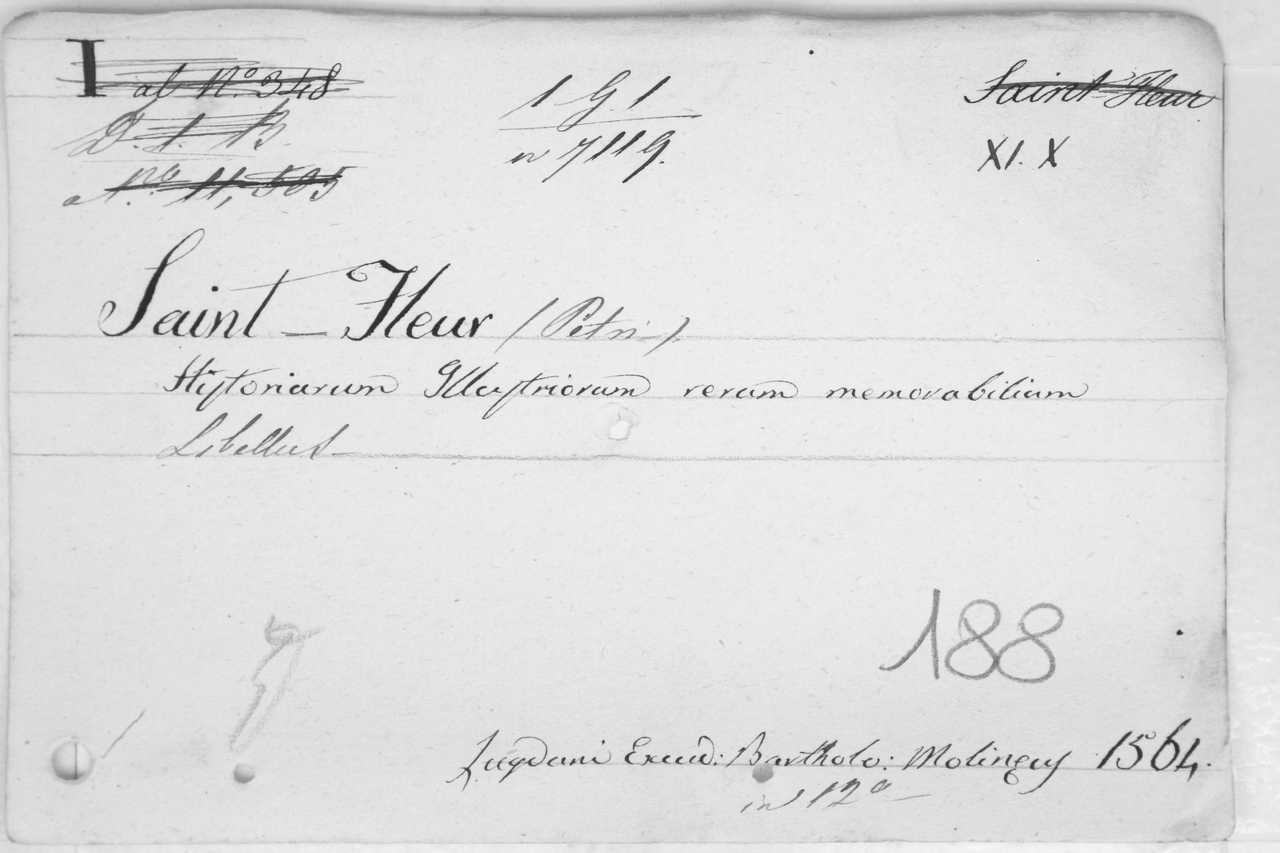 I ad N.º 348
D. 1. B.
a N.rº 11,505
1 G 1
n 7119.
Saint-Fleur
XI. X
Saint-Fleur (Petri)
Hystoriarum Illustriorum rerum memorabilium
Libellus
188
Lugduni Excud: Bartholo: Molineus 1564.
in 12º